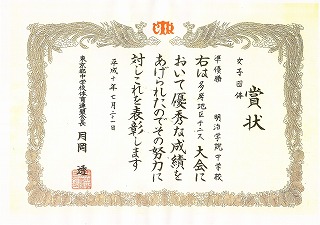 賞状
女子団体
準優勝 明治学院中学校
右は多摩地区テニス大会に
おいて優秀な成績を
あげられたのでその努力に
対しこれを表彰します
平成十年七月二十一日
東京都中学校体育連盟会長
月岡 透